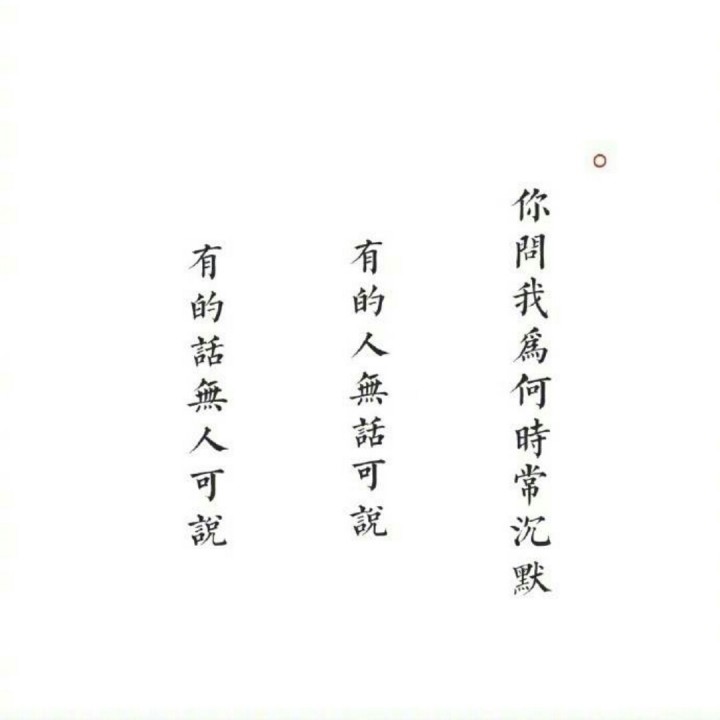 你問我為何時常沉默
有的人無話可說
有的話無人可說